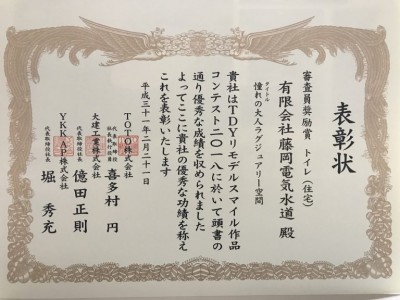 表彰状
審査員奨励賞 トイレ(住宅)
有限会社 藤岡電気水道 殿
タイトル
憧れの大人ラグジュアリー空間
貴社はTDYリモデルスマイル作品
コンテスト二〇一八に於いて頭書の
通り優秀な成績を収められました
よってここに貴社の優秀な功績を称え
これを表彰いたします
平成三十一年二月二十一日
TOTO株式会社
代表取締役
社長執行役員
喜多村 円
大建工業株式会社
代表取締役社長
億田正則
YKK AP株式会社
代表取締役社長
堀 秀充